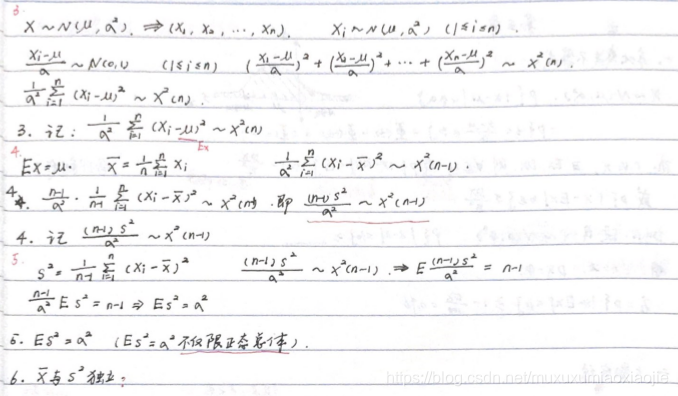 3.
X ~ N(μ, a²). ⇒ (X₁, X₂, ⋯, Xn). Xi ~ N(μ, a²) (1≤i≤n).
(Xi-μ)/a ~ N(0,1) (1≤i≤n) ((X₁-μ)/a)² + ((X₂-μ)/a)² + ⋯ + ((Xn-μ)/a)² ~ χ²(n).
1/a² ∑_{i=1}^{n} (Xi-μ)² ~ χ²(n).
3. 记: 1/a² ∑_{i=1}^{n} (Xi-μ)² ~ χ²(n)
Ex
4.
Ex=μ. X̄ = 1/n ∑_{i=1}^{n} Xi 1/a² ∑_{i=1}^{n} (Xi-X̄)² ~ χ²(n-1).
4. (n-1)/a² · 1/(n-1) ∑_{i=1}^{n} (Xi-X̄)² ~ χ² . 即 (n-1)S²/a² ~ χ²(n-1)
4. 记 (n-1)S²/a² ~ χ²(n-1)
5.
S² = 1/(n-1) ∑_{i=1}^{n} (Xi-X̄)² (n-1)S²/a² ~ χ²(n-1). ⇒ E (n-1)S²/a² = n-1
(n-1)/a² ES² = n-1 ⇒ ES² = a²
5. ES² = a² (ES² = a² 不仅限正态总体).
6. X̄与S²独立:
https://blog.csdn.net/muxuxumiaoxiaojie